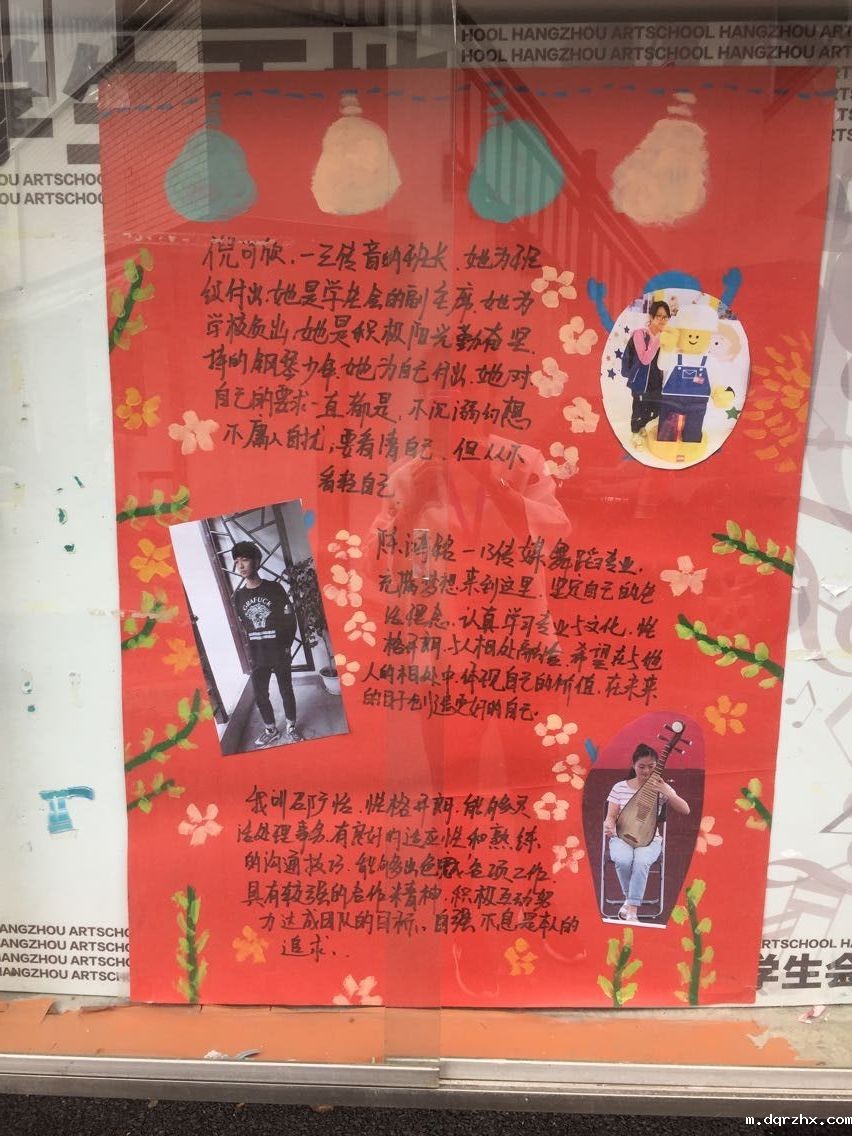 HOOL HANGZHOU ARTSCHOOL HANGZHOU ARTSCHOOL
OU ARTSCHOO
OU ARTSCHOO
倪可欣，一三传音的班长，她为班
级付出，她是学生会的副主席，她为
学校负出，她是积极阳光勤奋坚
持的钢琴少年，她为自己付出，她对
自己的要求一直都是，不沉溺幻想
不庸人自扰，要看清自己，但从不
看轻自己
陈鸿铭一13传媒舞蹈专业，
充满梦想来到这里，坚定自己的
理念，认真学习专业与文化，性
格开朗，与人相处融洽，希望在与他
人的相处中体现自己的价值，在未来
的日子创造更好的自己.
我叫石怡，性格开朗，能够灵
活处理事务，有良好的适应性和熟练
的沟通技巧，能够出色完成各项工作，
具有较强的合作精神，积极互动努
力达成团队的目标，自强不息是本人的
追求、.
HANGZHOU ARTSCHO
HANGZHOU ARTSCHO
HANGZHOU ARTSCHO
HANGZHOU ARTSC
ARTSCHOOL HA
学生会
m.dqrzhx.com